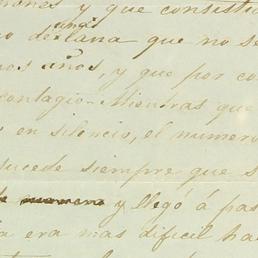 y que consistie
ungs
lana que no se
nos años, y que por co
contagio. Mientras que
o en silencio, el numero
sucede siempre que s
y llegó á pas
ia era mas dificil ha